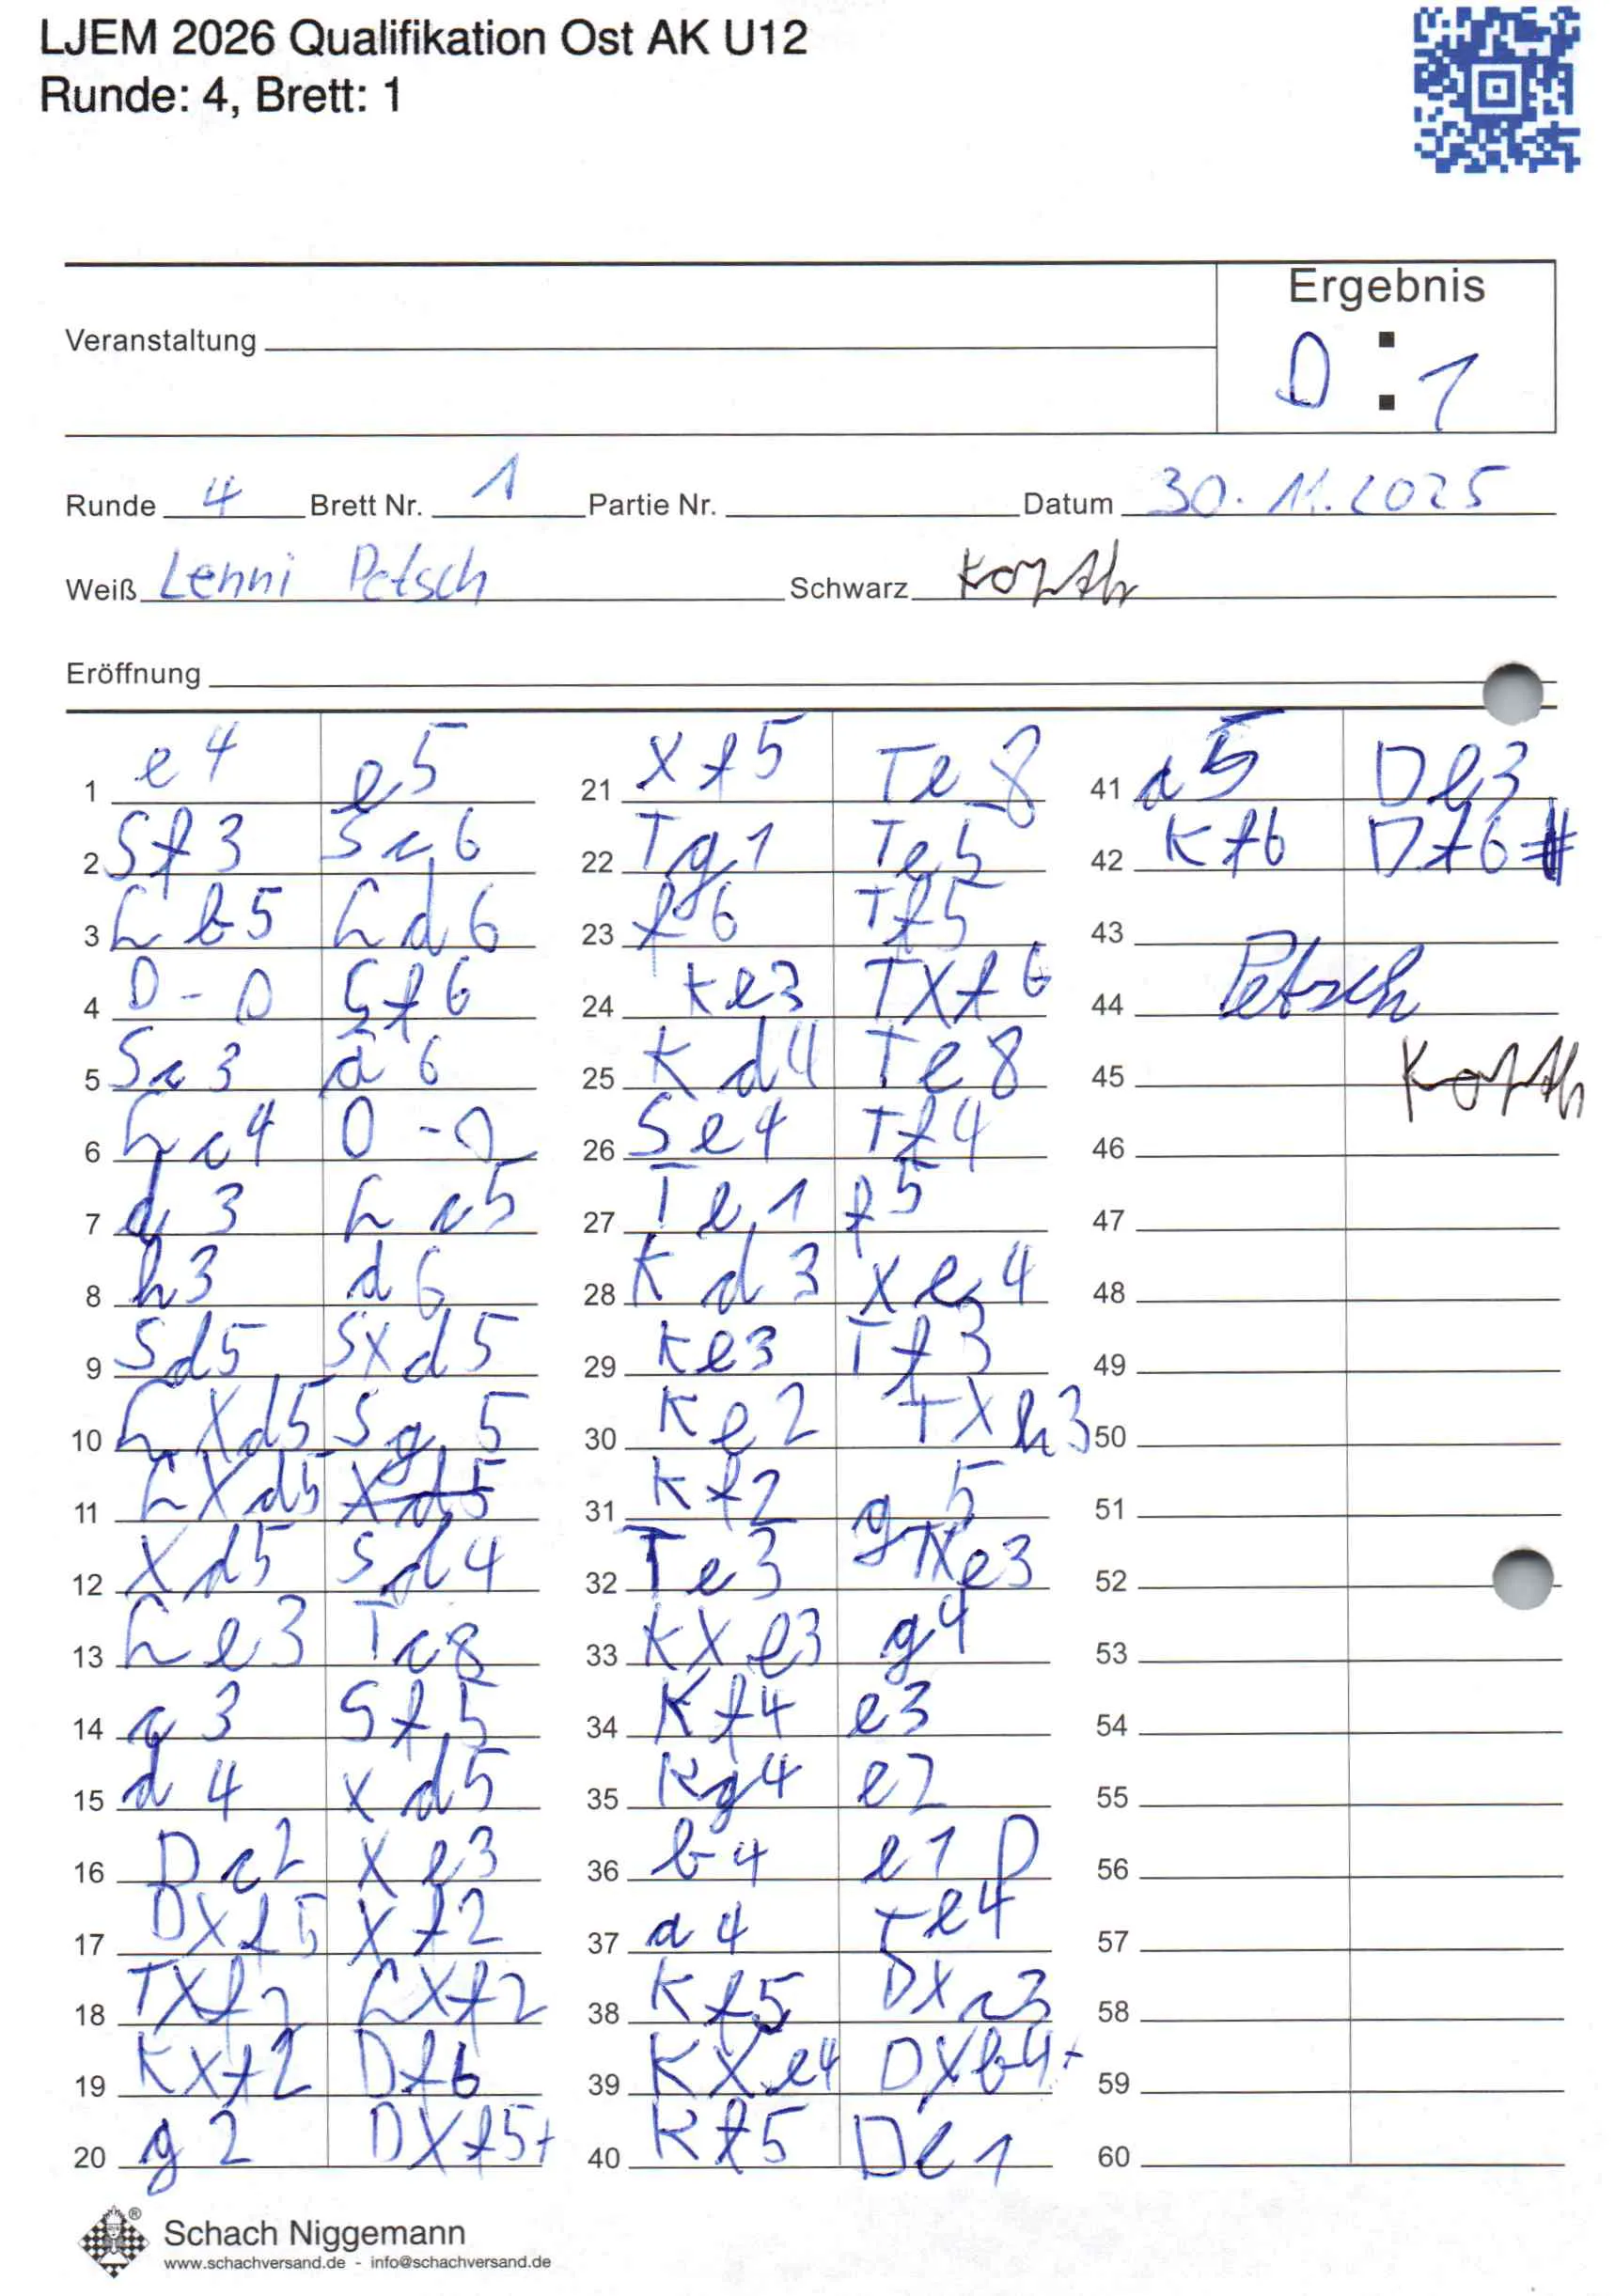 LJEM 2026 Qualifikation Ost AK U12
Runde: 4, Brett: 1
Ergebnis
0 : 1
Veranstaltung
Runde 4 Brett Nr. 1 Partie Nr. Datum 30.11.2025
Weiß Lenni Petsch Schwarz
Eröffnung
1 e4 e5
2 Sf3 Sc6
3 Lb5 Ld6
4 0-0 Sf6
5 Sc3 a6
6 Lc4 0-0
7 d3 Lc5
8 h3 d6
9 Sd5 Sxd5
10 LXd5 Sg5
11 LXd5 Xd5
12 Xd5 Sd4
13 Le3 Tc8
14 c3 Sf5
15 d4 xd5
16 Dc2 Xe3
17 DXf5 Xf2
18 TXf2 LXf2
19 KXf2 Df6
20 g2 DXf5+
21 Xf5 Te8
22 Tg1 Te5
23 f6 Tf5
24 Ke3 TXf6
25 Kd4 Te8
26 Se4 Tf4
27 Te1 f5
28 Kd3 Xe4
29 Ke3 Tf3
30 Ke2 TXh3
31 Kf2 g5
32 Te3 TXe3
33 KXe3 g4
34 Kf4 e3
35 Kg4 e2
36 b4 e1D
37 a4 Te4
38 Kf5 DXc3
39 KXe4 DXb4+
40 Kf5 De1
41 a5 De3
42 Kf6 Df6#
43
44 Petsch
45
46
47
48
49
50
51
52
53
54
55
56
57
58
59
60
Schach Niggemann
www.schachversand.de - info@schachversand.de